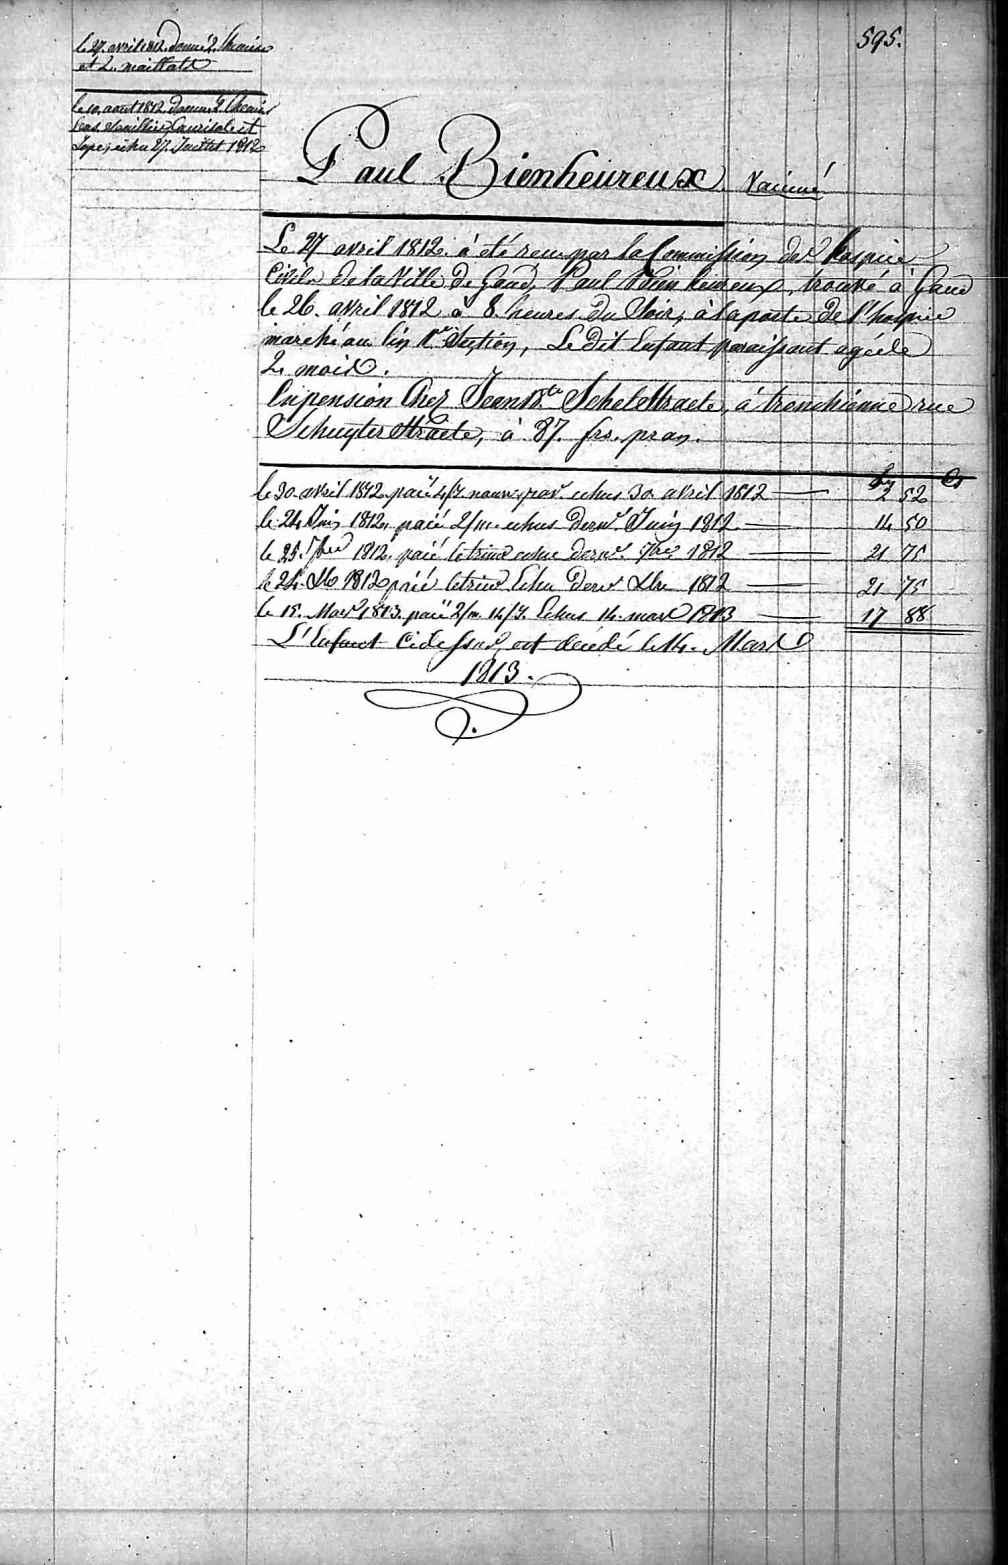 595.
le 27. avril 1812. donné 2. Chemises
et 2. maillots
le 10. aout 1812 donné 2. Chemis
1812
Paul Bienheureux vacciné
Le 27 avril 1812. à été recu par la Commission des hospice
Civile de la Ville de Gand, Paul Bienheureux, trouvé à Gand
le 26. avril 1812 à 8. heures du Soir, à la porte de l'hospice
marché au lin 1e Section, Le dit Enfant paraissant agé de
2 mois.
En pension Chez Jean Bte Schelstraete, à tronchienne rue
Schuyterstraete, à 87. frs. pr an.
frs Cs
le 30. avril 1812. paié 4/J. echus 30. avril 1812 — 2 52
le 24. Juin 1812. paié 2/m. echus dernr. Juin 1812 — 14 50
le 25. 7bre 1812. paié le trimr echu dernr. 7bre 1812 — 21 75
le 24. Xb 1812 paié le trimr Echu dernr Xbre 1812 — 21 75
le 15. Mars 1813. paié 2/m 14/J. Echus 14. mars 1813 — 17 88
L'Enfant Cidessus, est décédé le 14. Mars
1813.